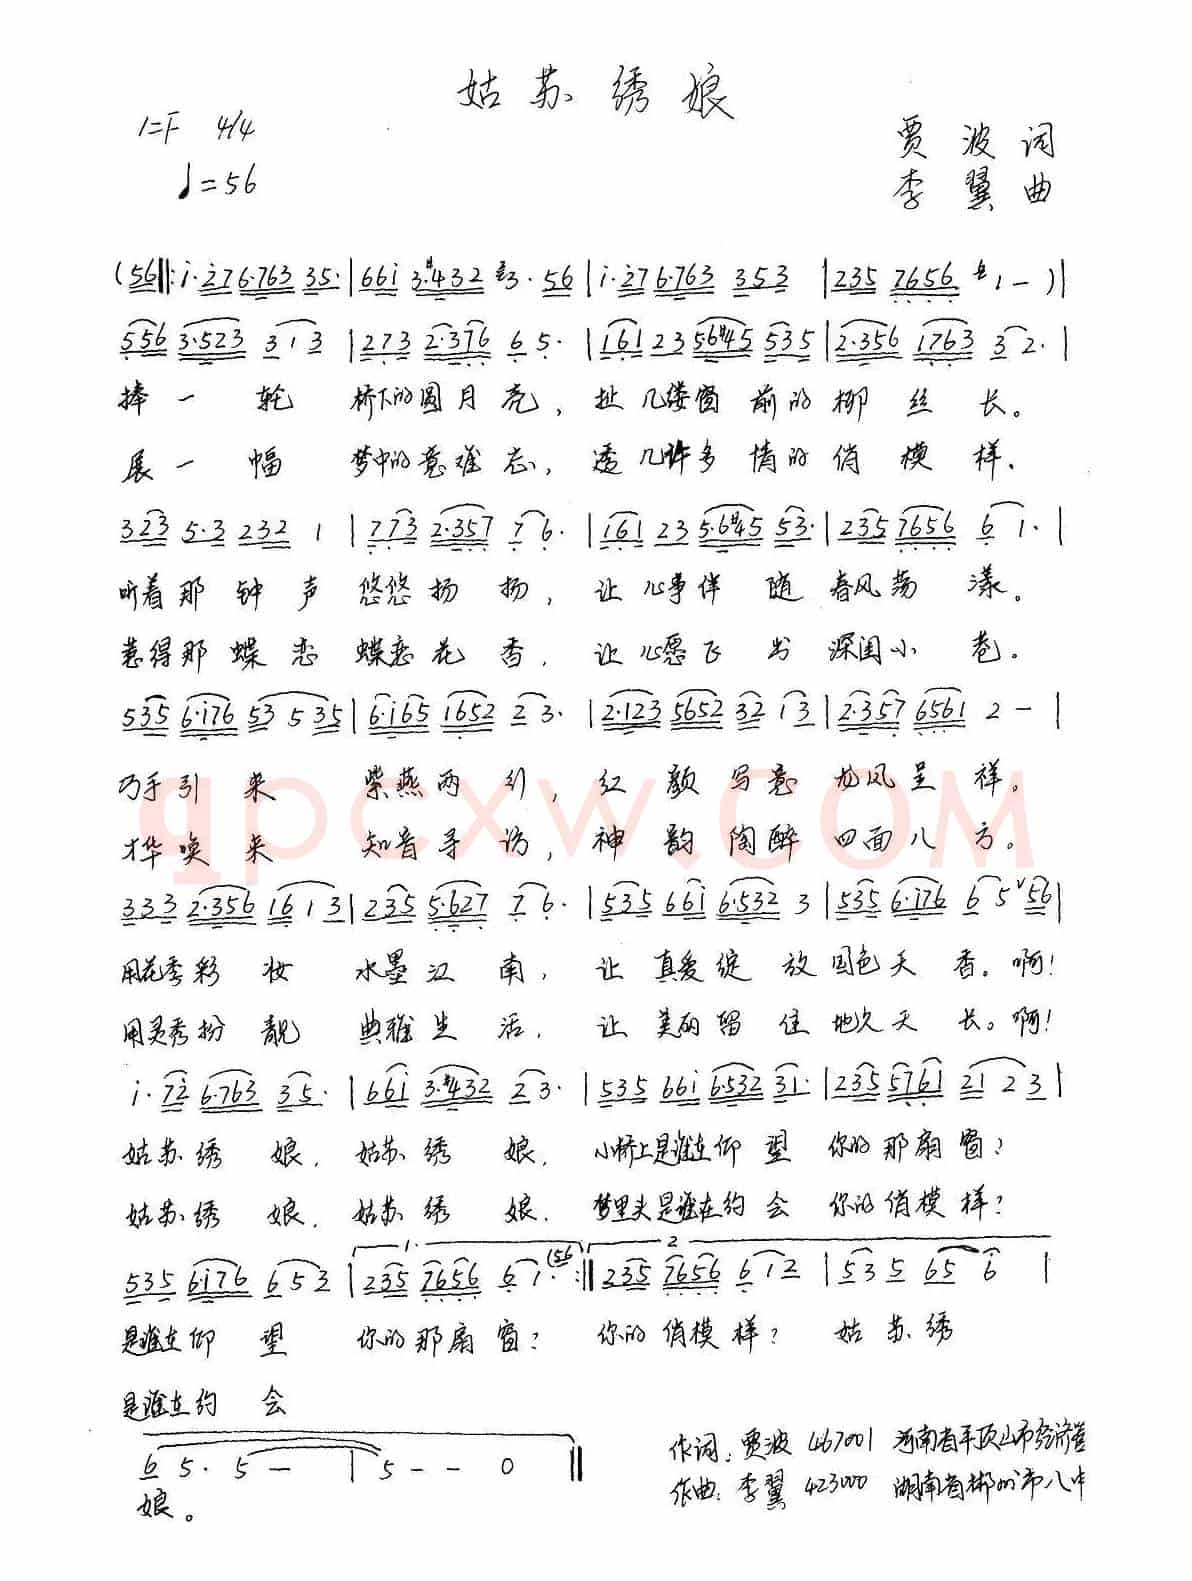 姑苏绣娘
1=F 4/4
♩=56
贾波词
李翼曲
(56‖:i·276·763 35·|661 3·#432 3·56|i·276·763 353|235 7656 1-)|
556 3·523 313|273 2·376 65·|161 23 56#45 535|2·356 1763 32·|
捧一轮 桥下的圆月亮，扯几缕窗前的柳丝长。
展一幅 梦中的意难忘，透几许多情的俏模样。
323 5·3 232 1|773 2·357 76·|161 23 5·6#45 53·|235 7656 61·|
听着那钟声悠悠扬扬，让心事伴随春风荡漾。
惹得那蝶恋蝶恋花香，让心愿飞出深闺小巷。
535 6·i76 53 535|6·i65 1652 23·|2·123 5652 32 13|2·357 6561 2-|
巧手引来 紫燕两引，红颜写意龙凤呈祥。
才华唤来 知音寻访，神韵陶醉四面八方。
qpcxw.com
333 2·356 16 13|235 5·627 76·|535 66i 6·532 3|535 6·i76 65 ∨56|
用花秀彩妆 水墨江南，让真爱绽放国色天香。啊！
用灵秀扮靓 典雅生活，让美丽留住地久天长。啊！
i·7i 6·763 35·|66i 3·#432 23·|535 66i 6·532 31·|235 5761 21 23|
姑苏绣娘，姑苏绣娘，小桥上是谁在仰望你的那扇窗？
姑苏绣娘，姑苏绣娘，梦里头是谁在约会你的俏模样？
1. 2
535 6·i76 653|235 7656 61· (56 :‖235 7656 612|535 65 6|
是谁在仰望 你的那扇窗？ 你的俏模样？ 姑苏绣
是谁在约会
65·5-|5--0‖
娘。
作词：贾波 467001 河南省平顶山市经济
作曲：李翼 423000 湖南省郴州市八中